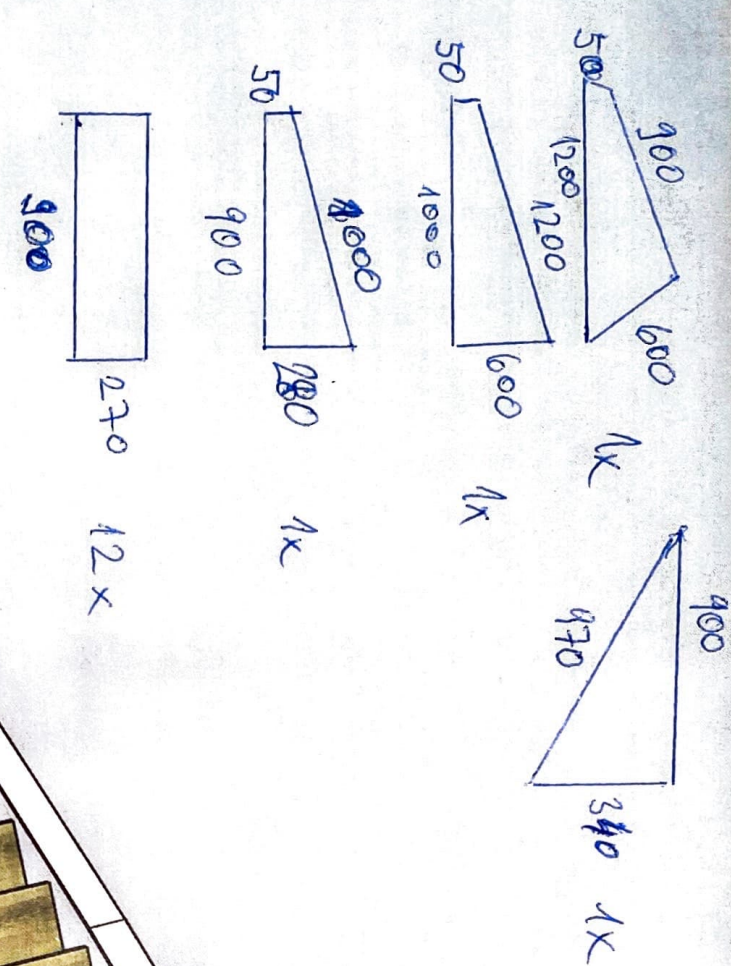 50
900
1200
600
1x
50
1200
1000
600
1x
50
1000
900
1x
900
270
12x
900
970
340
1x